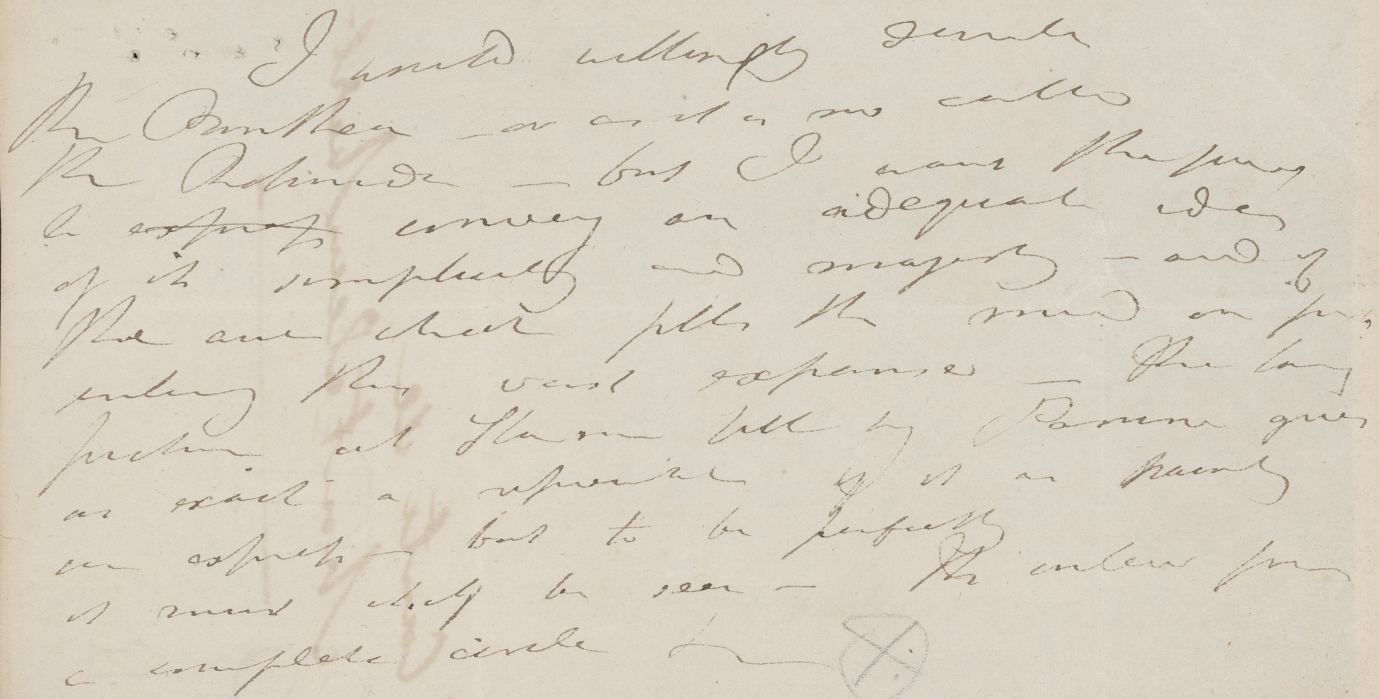 I would willingly describe
the Pantheon – or as it is now called
the Rotunda – but I want the power
to express convey an adequate idea
of its simplicity and majesty – and of
the awe which fills the mind on first
entering this vast expanse – The large
picture at Stowe by Pannini gives
as exact a representation of it as painting
can express – but to be perfectly
it must itself be seen – The interior forms
a complete circle